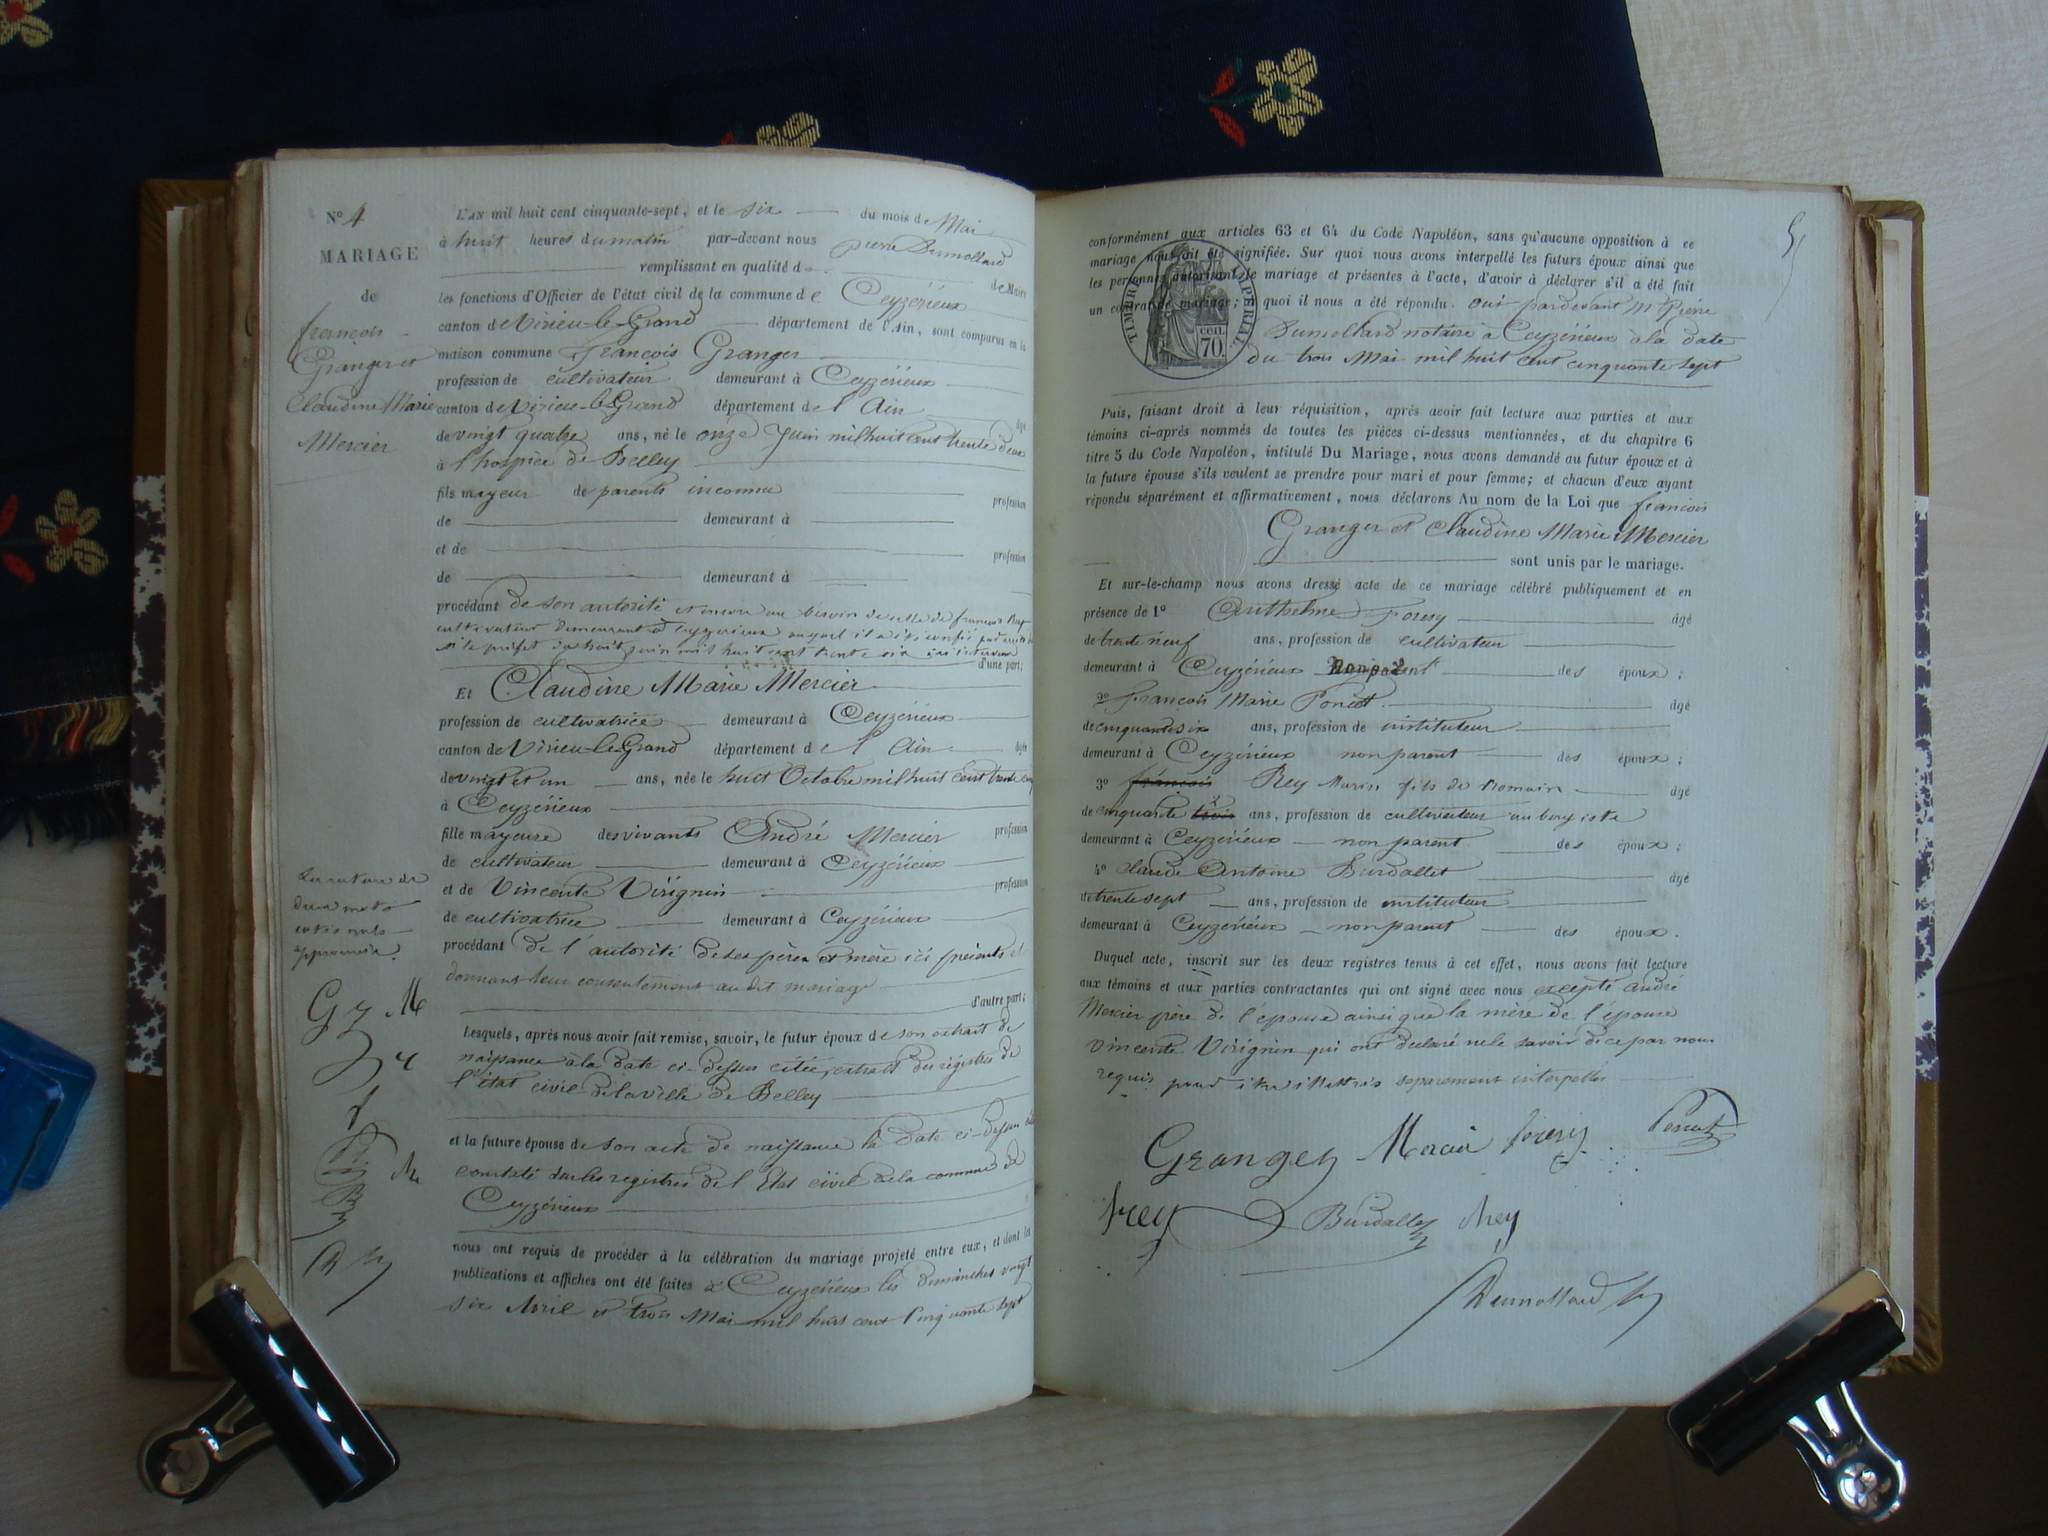 N° 4
MARIAGE
de
françois
Granger et
Claudine Marie
Mercier
L'AN mil huit cent cinquante-sept, et le six du mois de Mai
à huit heures du matin par-devant nous pierre Dumollard
remplissant en qualité de Maire
les fonctions d'Officier de l'état civil de la commune de Ceyzérieux
canton de Virieu-le-Grand département de l'Ain, sont comparus en la
maison commune françois Granger
profession de cultivateur demeurant à Ceyzérieux
canton de Virieu-le-Grand département de l'Ain âgé
de vingt quatre ans, né le onze Juin mil huit cent trente deux
à l'hospice de Belley
fils mayeur de parents inconnu profession
de demeurant à
et de profession
de demeurant à
procédant de son autorité et encore au besoin de celle de françois Rey
cultivateur demeurant à Ceyzerieux auquel il a été confié par
Mr le préfet du huit juin mil huit cent trente six
d'une part;
Et Claudine Marie Mercier
profession de cultivatrice demeurant à Ceyzérieux
canton de Virieu-le-Grand département de l'Ain âgée
de vingt et un ans, née le huit Octobre mil huit cent trente cinq
à Ceyzérieux
fille mayeure des vivants André Mercier profession
de cultivateur demeurant à Ceyzérieux
et de Vincente Virignin profession
de cultivatrice demeurant à Ceyzérieux
procédant de l'autorité de ses père et mère ici présents et
donnant leur consentement au dit mariage
d'autre part;
La rature de
deux mots
approuvée.
G M
Lesquels, après nous avoir fait remise, savoir, le futur époux de son extrait de
naissance à la date ci-dessus citée, extrait des régistres de
l'état civil de la ville de Belley
et la future épouse de son acte de naissance la date ci-dessus
constaté sur les registres de l'Etat civil de la commune de
Ceyzérieux
nous ont requis de procéder à la célébration du mariage projeté entre eux, et dont les
publications et affiches ont été faites à Ceyzérieux les dimanches vingt
six Avril et trois Mai mil huit cent cinquante sept
5
conformément aux articles 63 et 64 du Code Napoléon, sans qu'aucune opposition à ce
mariage nous ait été signifiée. Sur quoi nous avons interpellé les futurs époux ainsi que
les personnes autorisant le mariage et présentes à l'acte, d'avoir à déclarer s'il a été fait
un contrat de mariage; quoi il nous a été répondu. oui pardevant Mr Pierre
Dumollard notaire à Ceyzérieux à la date
du trois Mai mil huit cent cinquante sept
TIMBRE IMPÉRIAL
70 cen.
Puis, faisant droit à leur réquisition, après avoir fait lecture aux parties et aux
témoins ci-après nommés de toutes les pièces ci-dessus mentionnées, et du chapitre 6
titre 5 du Code Napoléon, intitulé Du Mariage, nous avons demandé au futur époux et à
la future épouse s'ils veulent se prendre pour mari et pour femme; et chacun d'eux ayant
répondu séparément et affirmativement, nous déclarons Au nom de la Loi que françois
Granger et Claudine Marie Mercier
sont unis par le mariage.
Et sur-le-champ nous avons dressé acte de ce mariage célébré publiquement et en
présence de 1° Anthelme Foresy âgé
de trente neuf ans, profession de cultivateur
demeurant à Ceyzérieux non parent des époux;
2° françois Marie Poncet âgé
de cinquante six ans, profession de instituteur
demeurant à Ceyzérieux non parent des époux;
3° françois Rey Marin fils de Romain âgé
de cinquante trois ans, profession de cultivateur aubergiste
demeurant à Ceyzérieux non parent des époux;
4° Claude Antoine Burdallet âgé
de trente sept ans, profession de instituteur
demeurant à Ceyzérieux non parent des époux.
Duquel acte, inscrit sur les deux registres tenus à cet effet, nous avons fait lecture
aux témoins et aux parties contractantes qui ont signé avec nous excepté André
Mercier père de l'épouse ainsi que la mère de l'épouse
Vincente Virignin qui ont declaré ne le savoir de ce par nous
requis séparement interpellés
Granger Mercier foresy Poncet
Rey Burdallet Rey
Dumollard